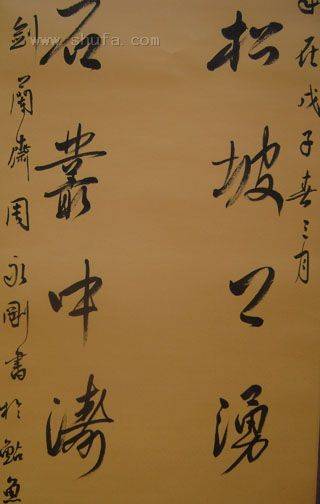 在戊子春三月
松坡上湧
石叢中濤
劍蘭齋周永剛書於鮎魚
www.shufa.com